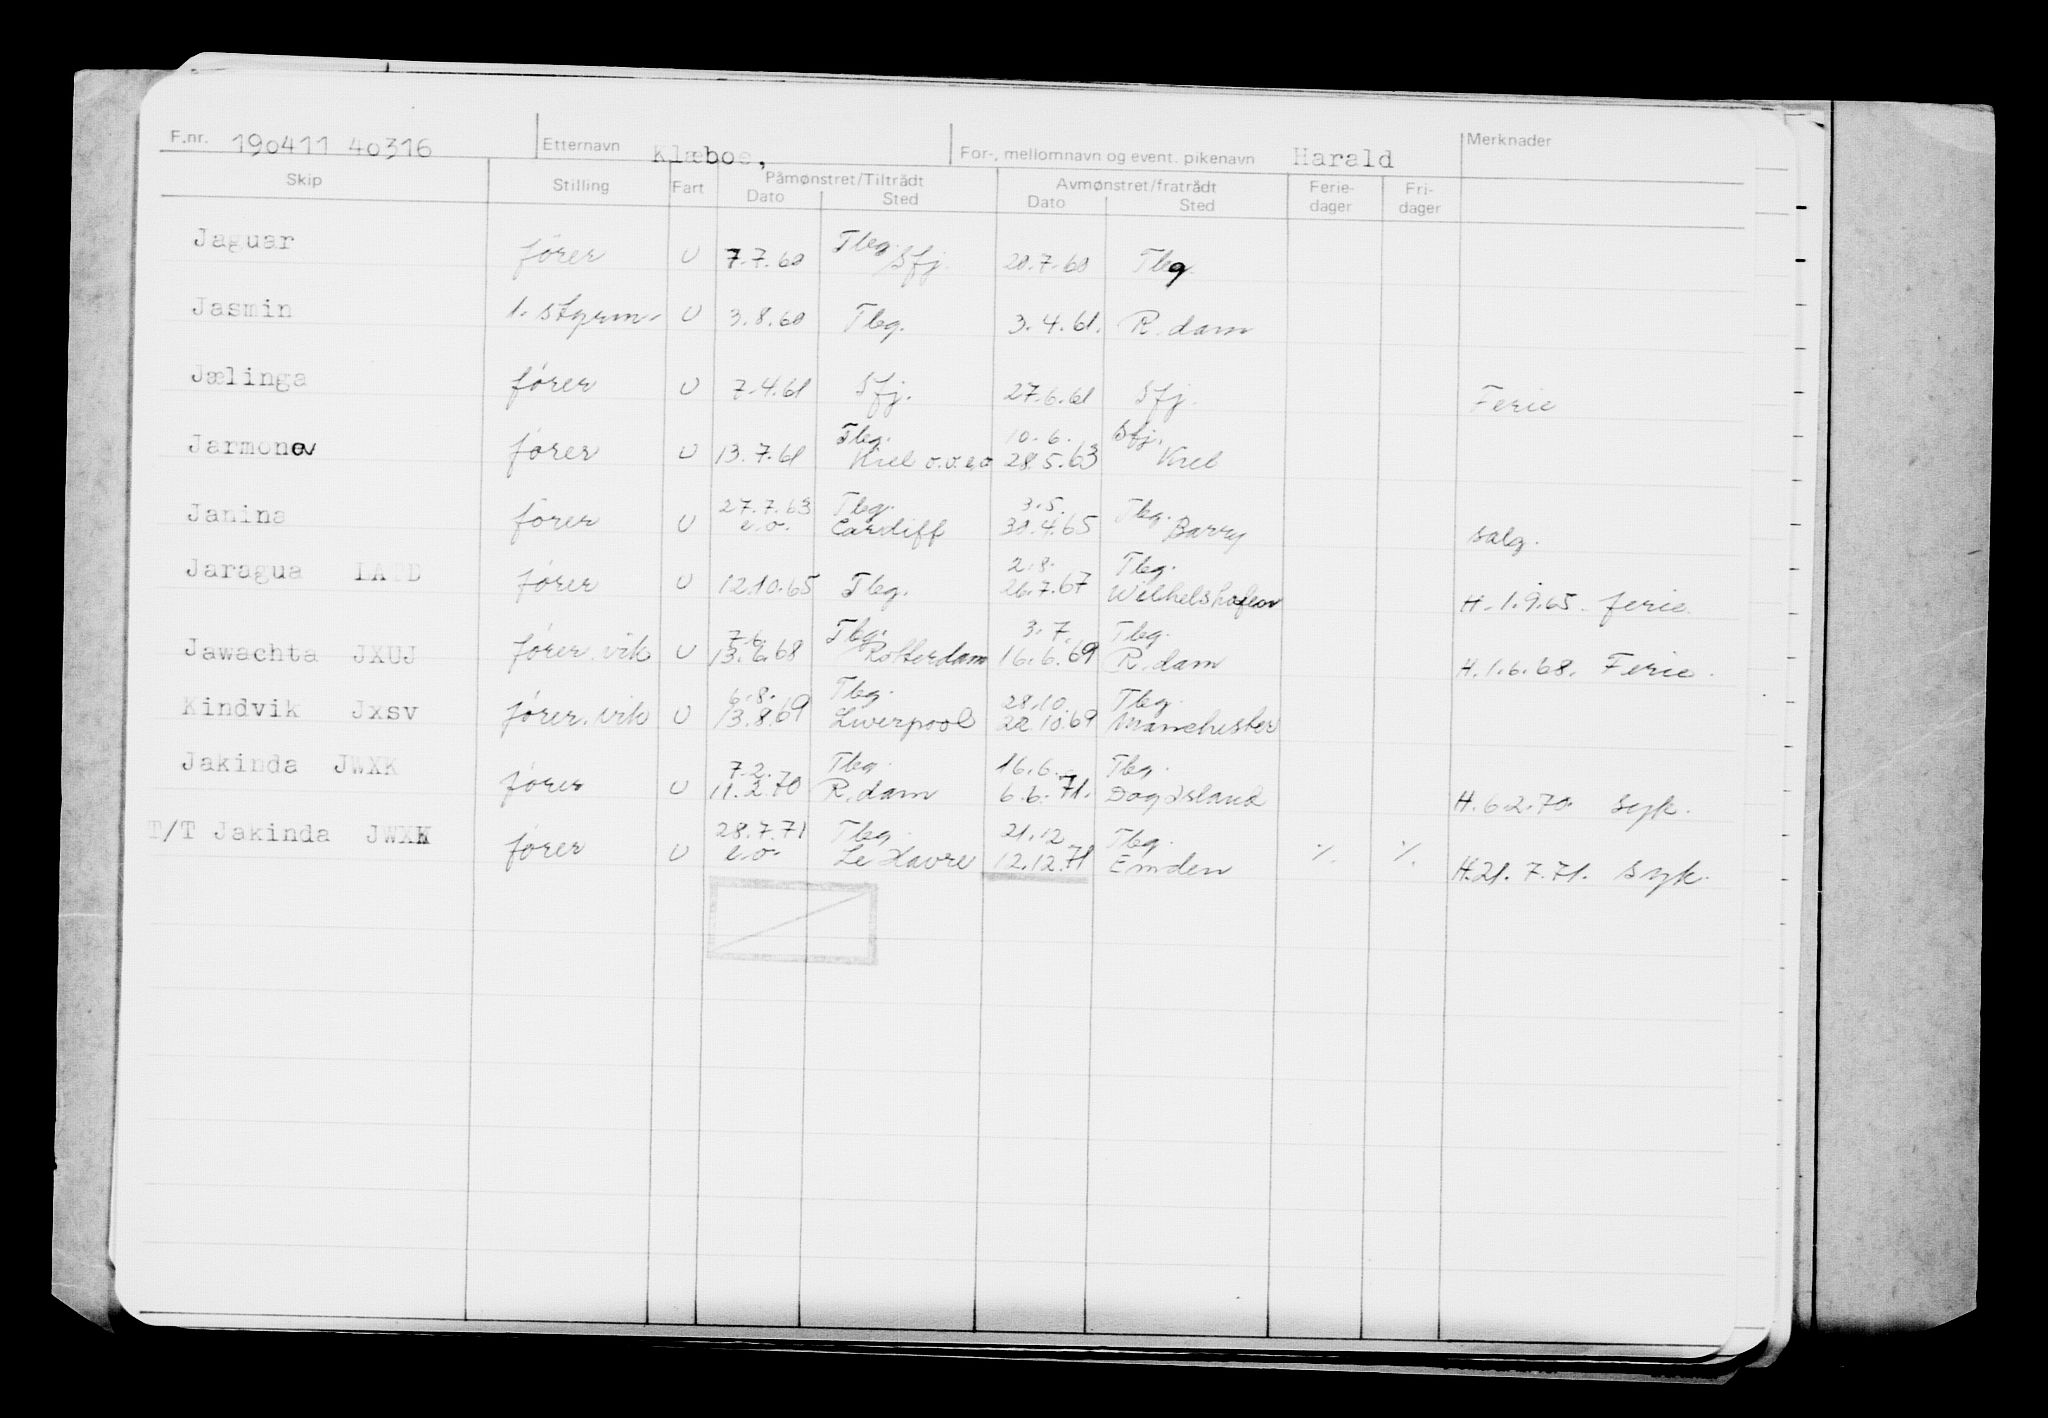 F.nr. 190411 40316 Etternavn Klæboe, For-, mellomnavn og event. pikenavn Harald Merknader
Skip Stilling Fart Påmønstret/Tiltrådt Avmønstret/fratrådt Ferie- Fri-
Dato Sted Dato Sted dager dager
Tbg.
Jaguar fører U 7.7.60 Sfj. 20.7.60 Tbg.
Jasmin 1. styrm. U 3.8.60 Tbg. 3.4.61. R.dam
Jælinga fører U 7.4.61 Sfj. 27.6.61 Sfj. Ferie
Tbg. 10.6. Sfj.
Jarmona fører U 13.7.61 Kiel v.v.e.o 28.5.63 Kiel
27.7.63 Tbg. 3.5. Tbg.
Janina fører U e.o. Cardiff 30.4.65 Barry salg.
2.8. Tbg.
Jaragua LATD fører U 12.10.65 Tbg. 26.7.67 Wilhelshafen H. 1.9.65. ferie.
7.6. Tbg. 3.7. Tbg.
Jawachta JXUJ fører.vik U 13.6.68 Rotterdam 16.6.69 R.dam H.1.6.68. Ferie.
6.8. Tbg. 28.10. Tbg.
Kindvik Jxsv fører.vik U 13.8.69 Liverpool 22.10.69 Manchester
7.2. Tbg. 16.6. Tbg.
Jakinda JWXK fører U 11.2.70 R.dam 6.6.71. Dog Island H.6.2.70. syk.
28.7.71 Tbg. 21.12 Tbg.
T/T Jakinda JWXK fører U e.o. Le Havre 12.12.71 Emden ./. ./. H.21.7.71. syk.